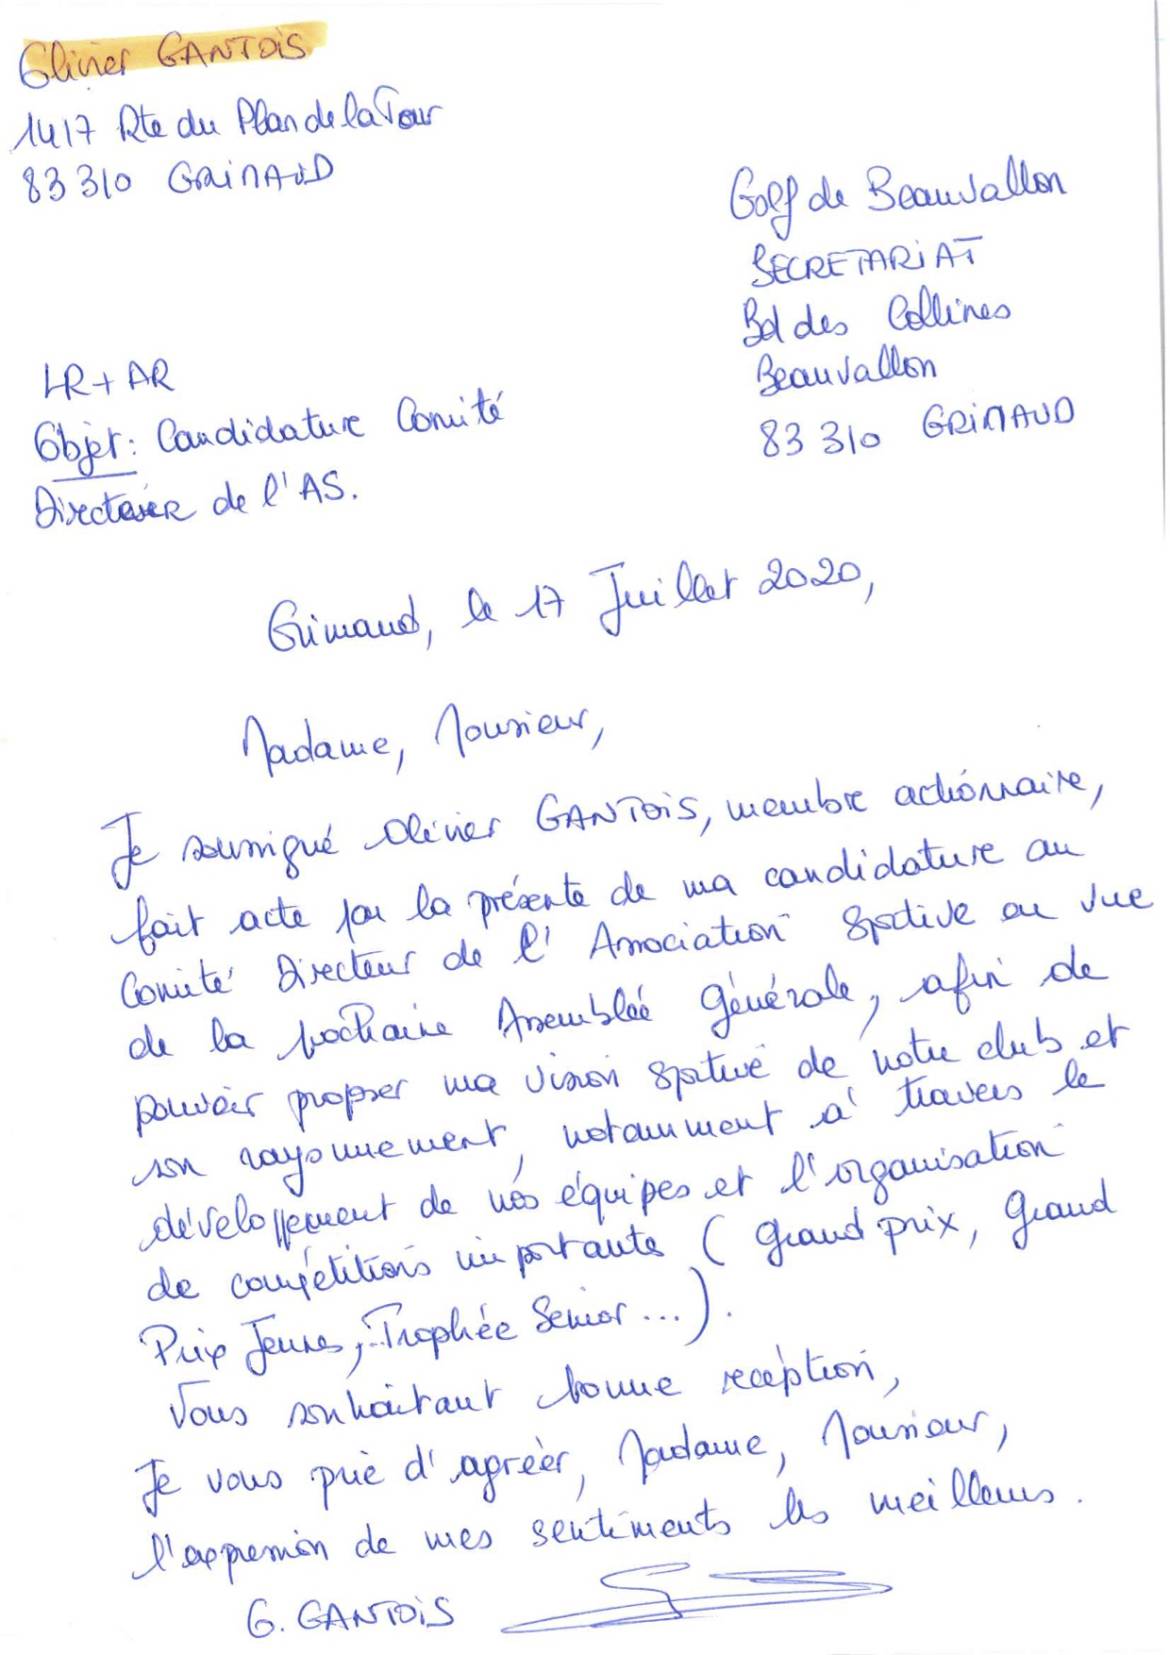 Olivier GANTOIS
1417 Rte du Plan de la Tour
83 310 GRIMAUD
Golf de Beauvallon
SECRETARIAT
Bd des Collines
Beauvallon
83 310 GRIMAUD
LR + AR
Objet : Candidature Comité
Directeur de l'AS.
Grimaud, le 17 Juillet 2020,
Madame, Monsieur,
Je soussigné Olivier GANTOIS, membre actionnaire,
fait acte par la présente de ma candidature au
Comité Directeur de l'Association Sportive en vue
de la prochaine Assemblée Générale, afin de
pouvoir proposer ma vision sportive de notre club et
son rayonnement, notamment à travers le
développement de nos équipes et l'organisation
de compétitions importante (Grand prix, Grand
Prix Jeunes, Trophée Senior ...).
Vous souhaitant bonne reception,
Je vous prie d'agréer, Madame, Monsieur,
l'expression de mes sentiments les meilleurs.
O. GANTOIS